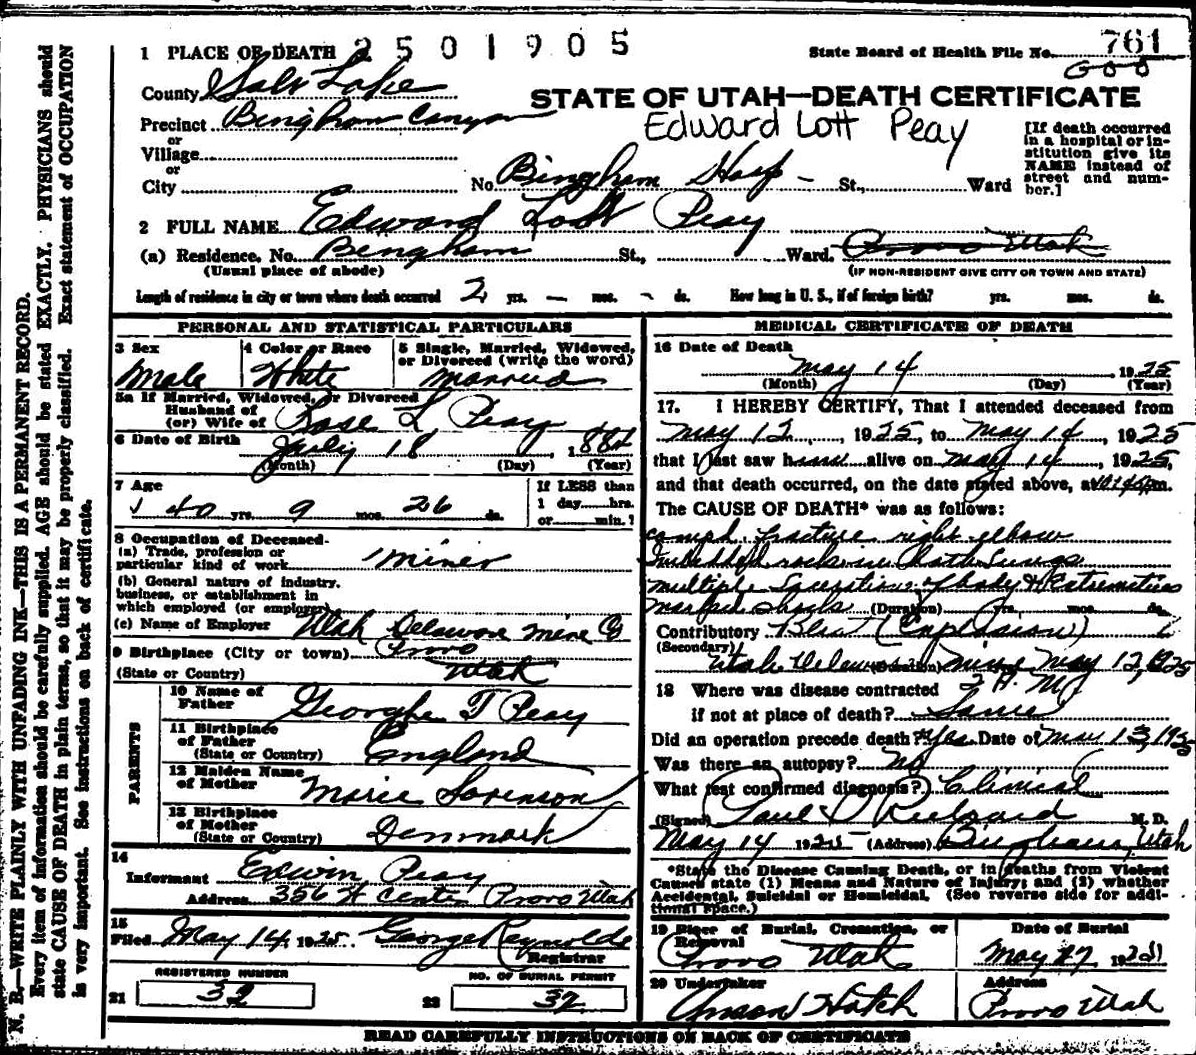 1 PLACE OF DEATH 2501905
State Board of Health File No. 761
600
County Salt Lake
STATE OF UTAH—DEATH CERTIFICATE
Precinct Bingham Canyon
Edward Lott Peay
or
Village
or
City
No. Bingham Hosp - St., Ward
[If death occurred in a hospital or in-
stitution give its
NAME instead of
street and num-
ber.]
2 FULL NAME Edward Lott Peay
(a) Residence. No. Bingham St., Ward. Provo Utah
(Usual place of abode)
(IF NON-RESIDENT GIVE CITY OR TOWN AND STATE)
Length of residence in city or town where death occurred 2 yrs. — mos. - ds. How long in U. S., if of foreign birth? yrs. mos. ds.
PERSONAL AND STATISTICAL PARTICULARS
3 Sex
Male
4 Color or Race
White
5 Single, Married, Widowed,
or Divorced (write the word)
Married
5a If Married, Widowed, or Divorced
Husband of
(or) Wife of Rose L Peay
6 Date of Birth July 18, 1884
(Month) (Day) (Year)
7 Age
40 yrs. 9 mos. 26 ds.
If LESS than
1 day hrs.
or min.?
8 Occupation of Deceased-
(a) Trade, profession or
particular kind of work miner
(b) General nature of industry.
business, or establishment in
which employed (or employer)
(c) Name of Employer Utah Delaware Mine Co
9 Birthplace (City or town) Provo
(State or Country) Utah
PARENTS
10 Name of
Father George T Peay
11 Birthplace
of Father
(State or Country) England
12 Maiden Name
of Mother Marie Sorenson
13 Birthplace
of Mother
(State or Country) Denmark
14
Informant Edwin Peay
Address 356 W Center Provo Utah
15
Filed May 14, 1925 George Reynolds
Registrar
REGISTERED NUMBER
21 32
NO. OF BURIAL PERMIT
22 32
MEDICAL CERTIFICATE OF DEATH
16 Date of Death
May 14, 1925
(Month) (Day) (Year)
17. I HEREBY CERTIFY, That I attended deceased from
May 12, 1925, to May 14, 1925
that I last saw him alive on May 14, 1925,
and that death occurred, on the date stated above, at m.
The CAUSE OF DEATH* was as follows:
comp. fracture right elbow
Imbedded rocks in both lungs
multiple lacerations of body & Extremities
marked shock (Duration) yrs. mos. ds.
Contributory Blast (Explosion)
(Secondary)
Utah Delaware Mine May 12, 1925
18 Where was disease contracted 2 A. M.
if not at place of death? Same
Did an operation precede death? Yes. Date of May 13, 1925
Was there an autopsy? No
What test confirmed diagnosis? Clinical
(Signed) Paul S Richards M. D.
May 14 1925 (Address) Bingham, Utah
*State the Disease Causing Death, or in deaths from Violent
Causes state (1) Means and Nature of Injury; and (2) whether
Accidental, Suicidal or Homicidal. (See reverse side for addi-
tional space.)
19 Place of Burial, Cremation, or
Removal
Provo Utah
Date of Burial
May 17 1925
20 Undertaker
Anson Hatch
Address
Provo Utah
READ CAREFULLY INSTRUCTIONS ON BACK OF CERTIFICATE
N. B.—WRITE PLAINLY WITH UNFADING INK—THIS IS A PERMANENT RECORD.
Every item of information should be carefully supplied. AGE should be stated EXACTLY. PHYSICIANS should
state CAUSE OF DEATH in plain terms, so that it may be properly classified. Exact statement of OCCUPATION
is very important. See instructions on back of certificate.